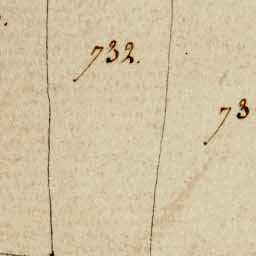 732.
73